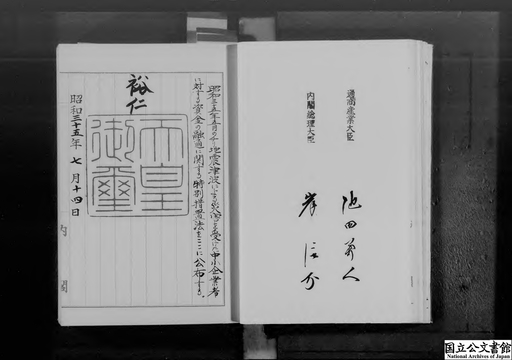 昭和三十五年五月のチリ地震津波による災害を受けた中小企業者
に対する資金の融通に関する特別措置法をここに公布する。
裕仁
天皇
御璽
昭和三十五年七月十四日
内閣
通商産業大臣 池田勇人
内閣総理大臣 岸信介
国立公文書館
National Archives of Japan